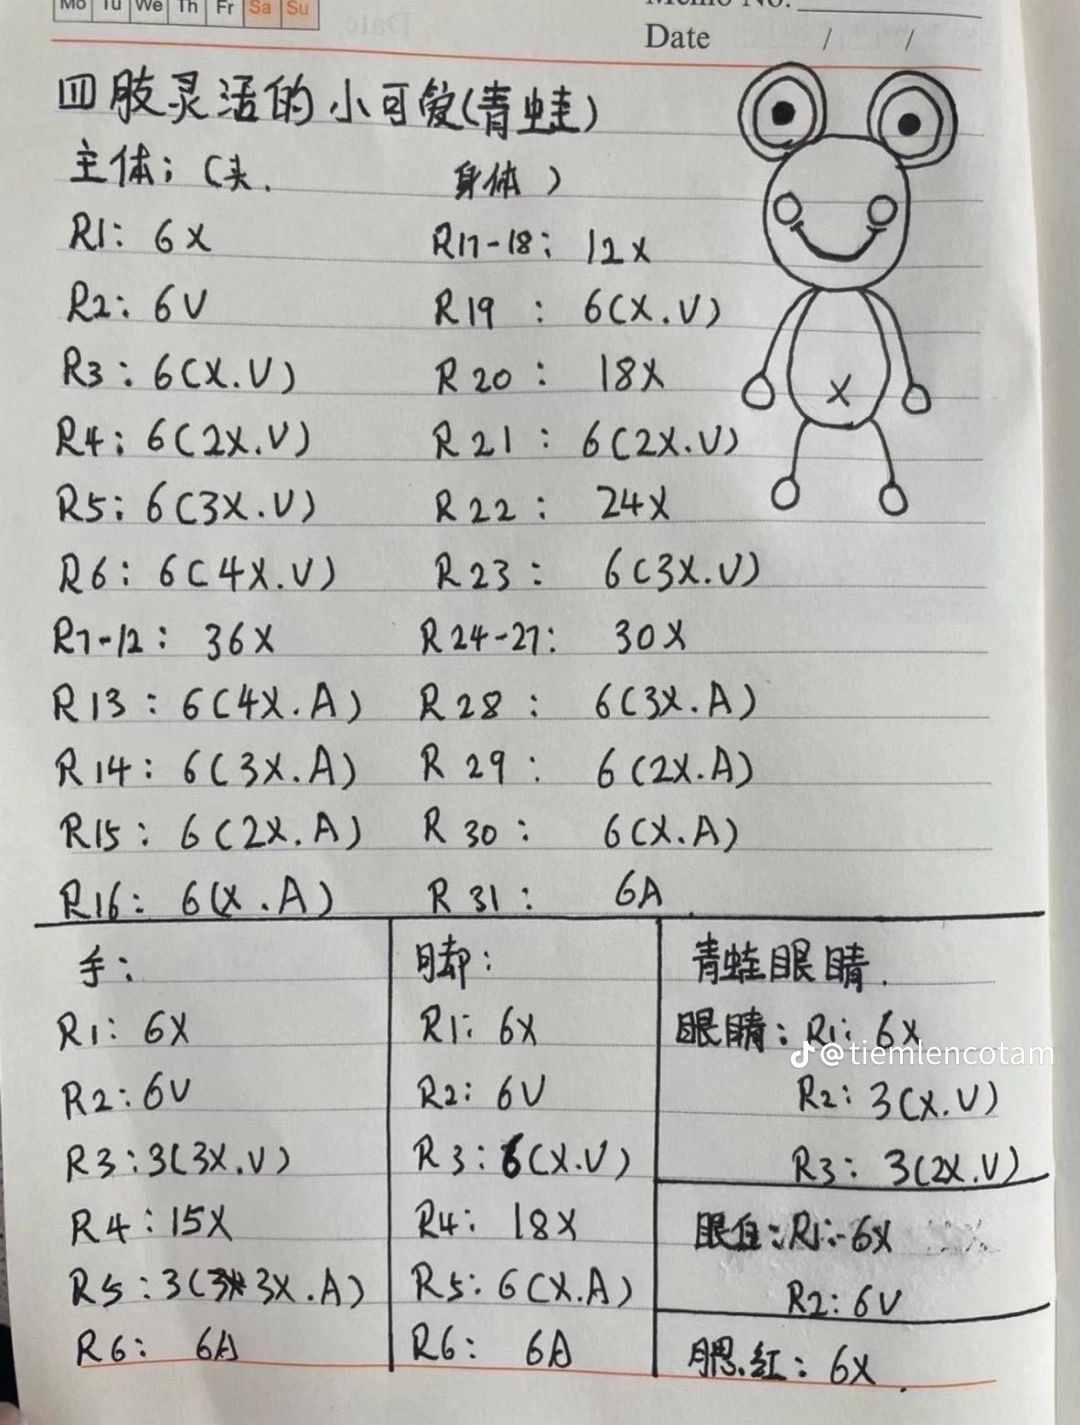 Mo Tu We Th Fr Sa Su
Memo No.
Date / /
四肢灵活的小可爱(青蛙)
主体:(头.
R1: 6X
R2: 6V
R3: 6(X.V)
R4: 6(2X.V)
R5: 6(3X.V)
R6: 6(4X.V)
R7-12: 36X
R13: 6(4X.A)
R14: 6(3X.A)
R15: 6(2X.A)
R16: 6(X.A)
身体)
R17-18: 12X
R19: 6(X.V)
R20: 18X
R21: 6(2X.V)
R22: 24X
R23: 6(3X.V)
R24-27: 30X
R28: 6(3X.A)
R29: 6(2X.A)
R30: 6(X.A)
R31: 6A
X
手:
R1: 6X
R2: 6V
R3: 3(3X.V)
R4: 15X
R5: 3(3X.A)
R6: 6A
脚:
R1: 6X
R2: 6V
R3: 6(X.V)
R4: 18X
R5: 6(X.A)
R6: 6A
青蛙眼睛.
眼睛: R1: 6X
@tiemlencotam
R2: 3(X.V)
R3: 3(2X.V)
眼白: R1: 6X
R2: 6V
腮红: 6X.